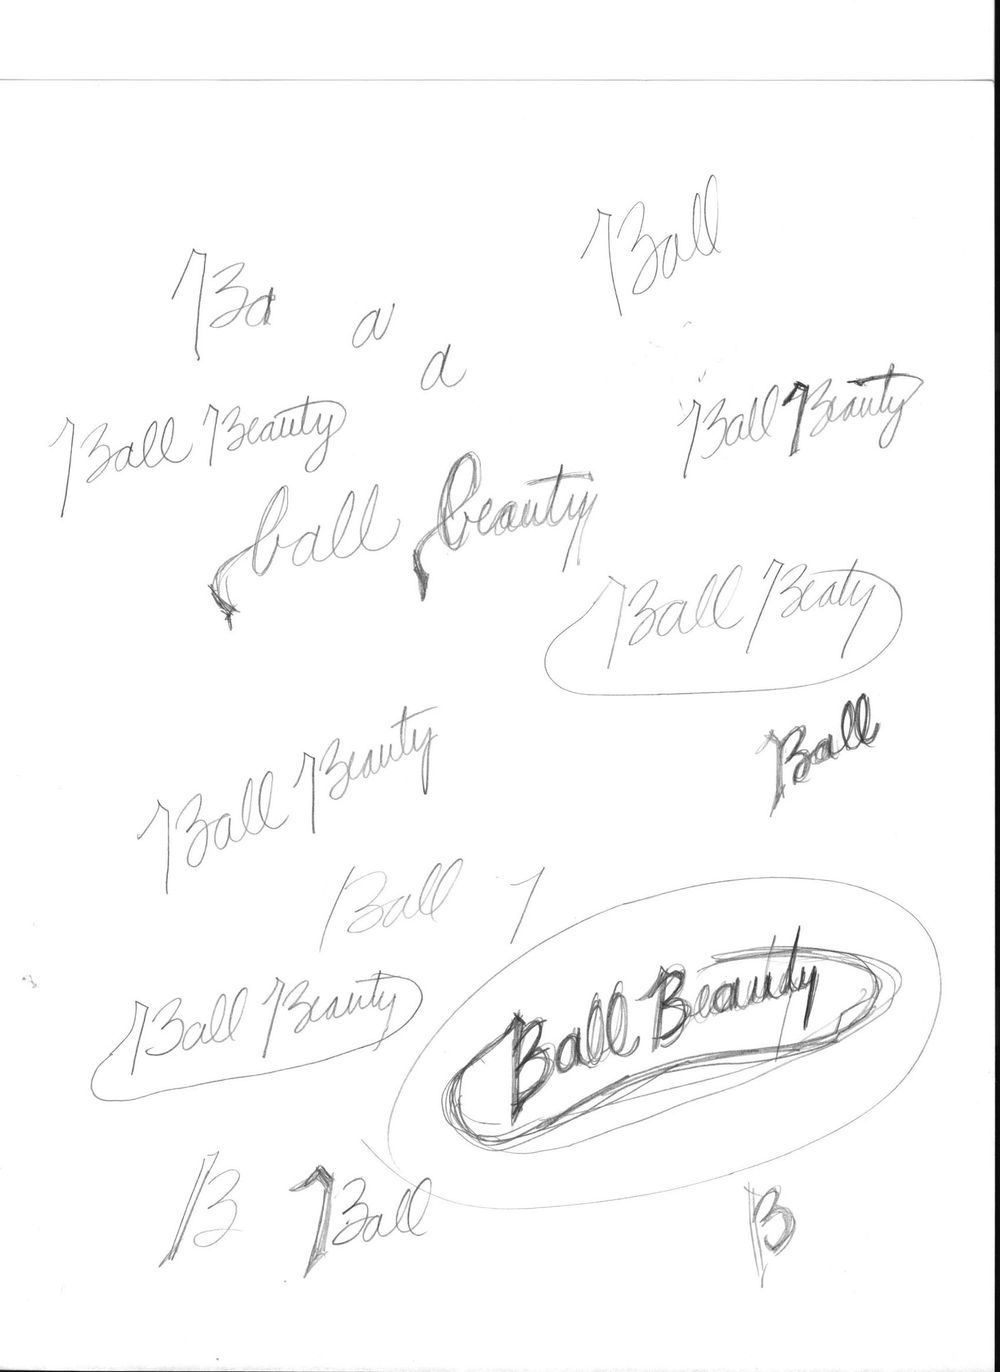 Ball
Ba
a
a
Ball Beauty
Ball Beauty
ball beauty
Ball Beaty
Ball
Ball Beauty
Ball
Ball Beauty
Ball Beauty
B
Ball
B